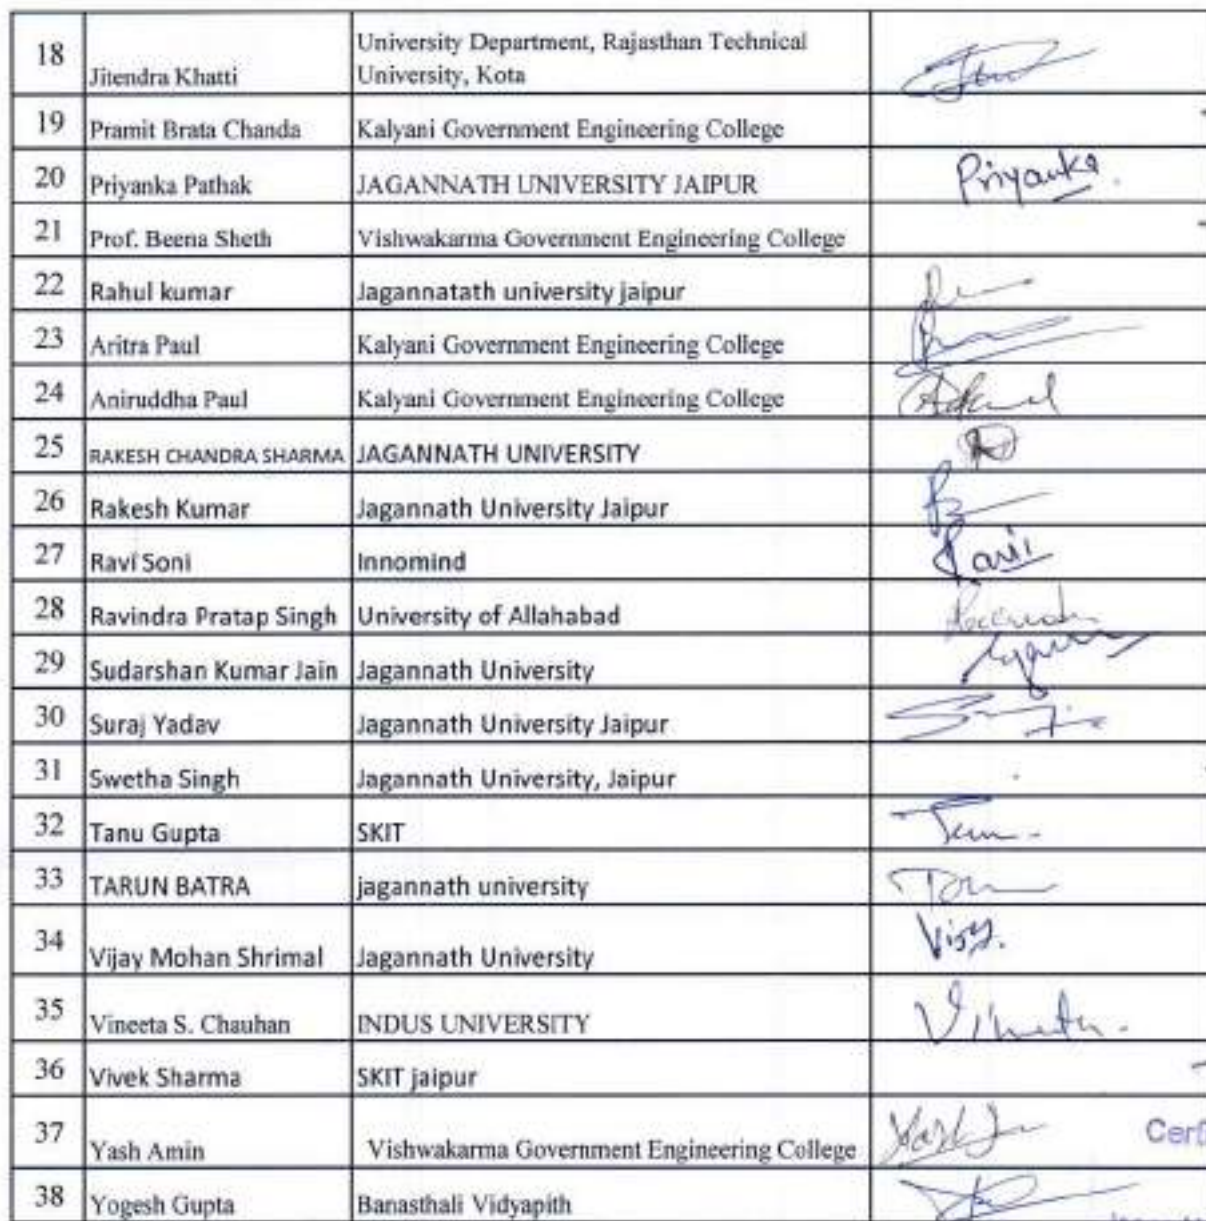 18 Jitendra Khatti University Department, Rajasthan Technical
University, Kota
19 Pramit Brata Chanda Kalyani Government Engineering College
20 Priyanka Pathak JAGANNATH UNIVERSITY JAIPUR Priyanka.
21 Prof. Beena Sheth Vishwakarma Government Engineering College
22 Rahul kumar Jagannatath university jaipur
23 Aritra Paul Kalyani Government Engineering College
24 Aniruddha Paul Kalyani Government Engineering College
25 RAKESH CHANDRA SHARMA JAGANNATH UNIVERSITY
26 Rakesh Kumar Jagannath University Jaipur
27 Ravi Soni Innomind Ravi
28 Ravindra Pratap Singh University of Allahabad
29 Sudarshan Kumar Jain Jagannath University
30 Suraj Yadav Jagannath University Jaipur
31 Swetha Singh Jagannath University, Jaipur
32 Tanu Gupta SKIT
33 TARUN BATRA jagannath university
34 Vijay Mohan Shrimal Jagannath University Vijay.
35 Vineeta S. Chauhan INDUS UNIVERSITY Vineeta.
36 Vivek Sharma SKIT jaipur
37 Yash Amin Vishwakarma Government Engineering College
38 Yogesh Gupta Banasthali Vidyapith